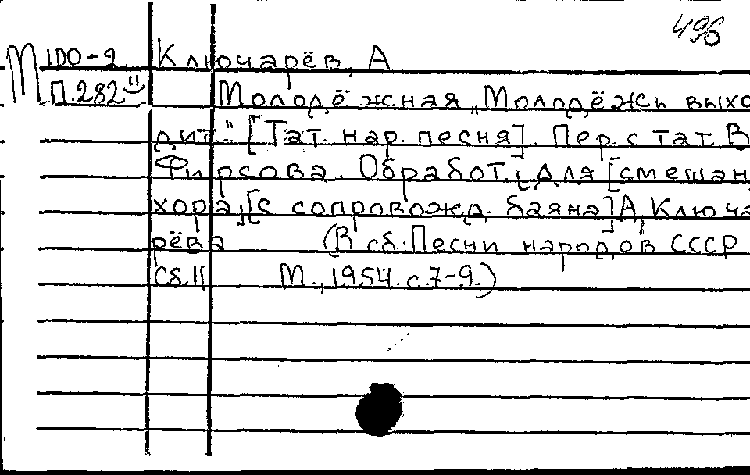 496
М 100-2 Ключарёв, А
П.282 Молодёжная „Молодёжь выхо
дит." [Тат. нар. песня]. Пер. с тат. В
Фирсова. Обработ. [для [смешан
хора,[с сопровожд. баяна] А. Ключа
рёва (В сб: Песни народов СССР
Сб. II М., 1954. с. 7-9.)